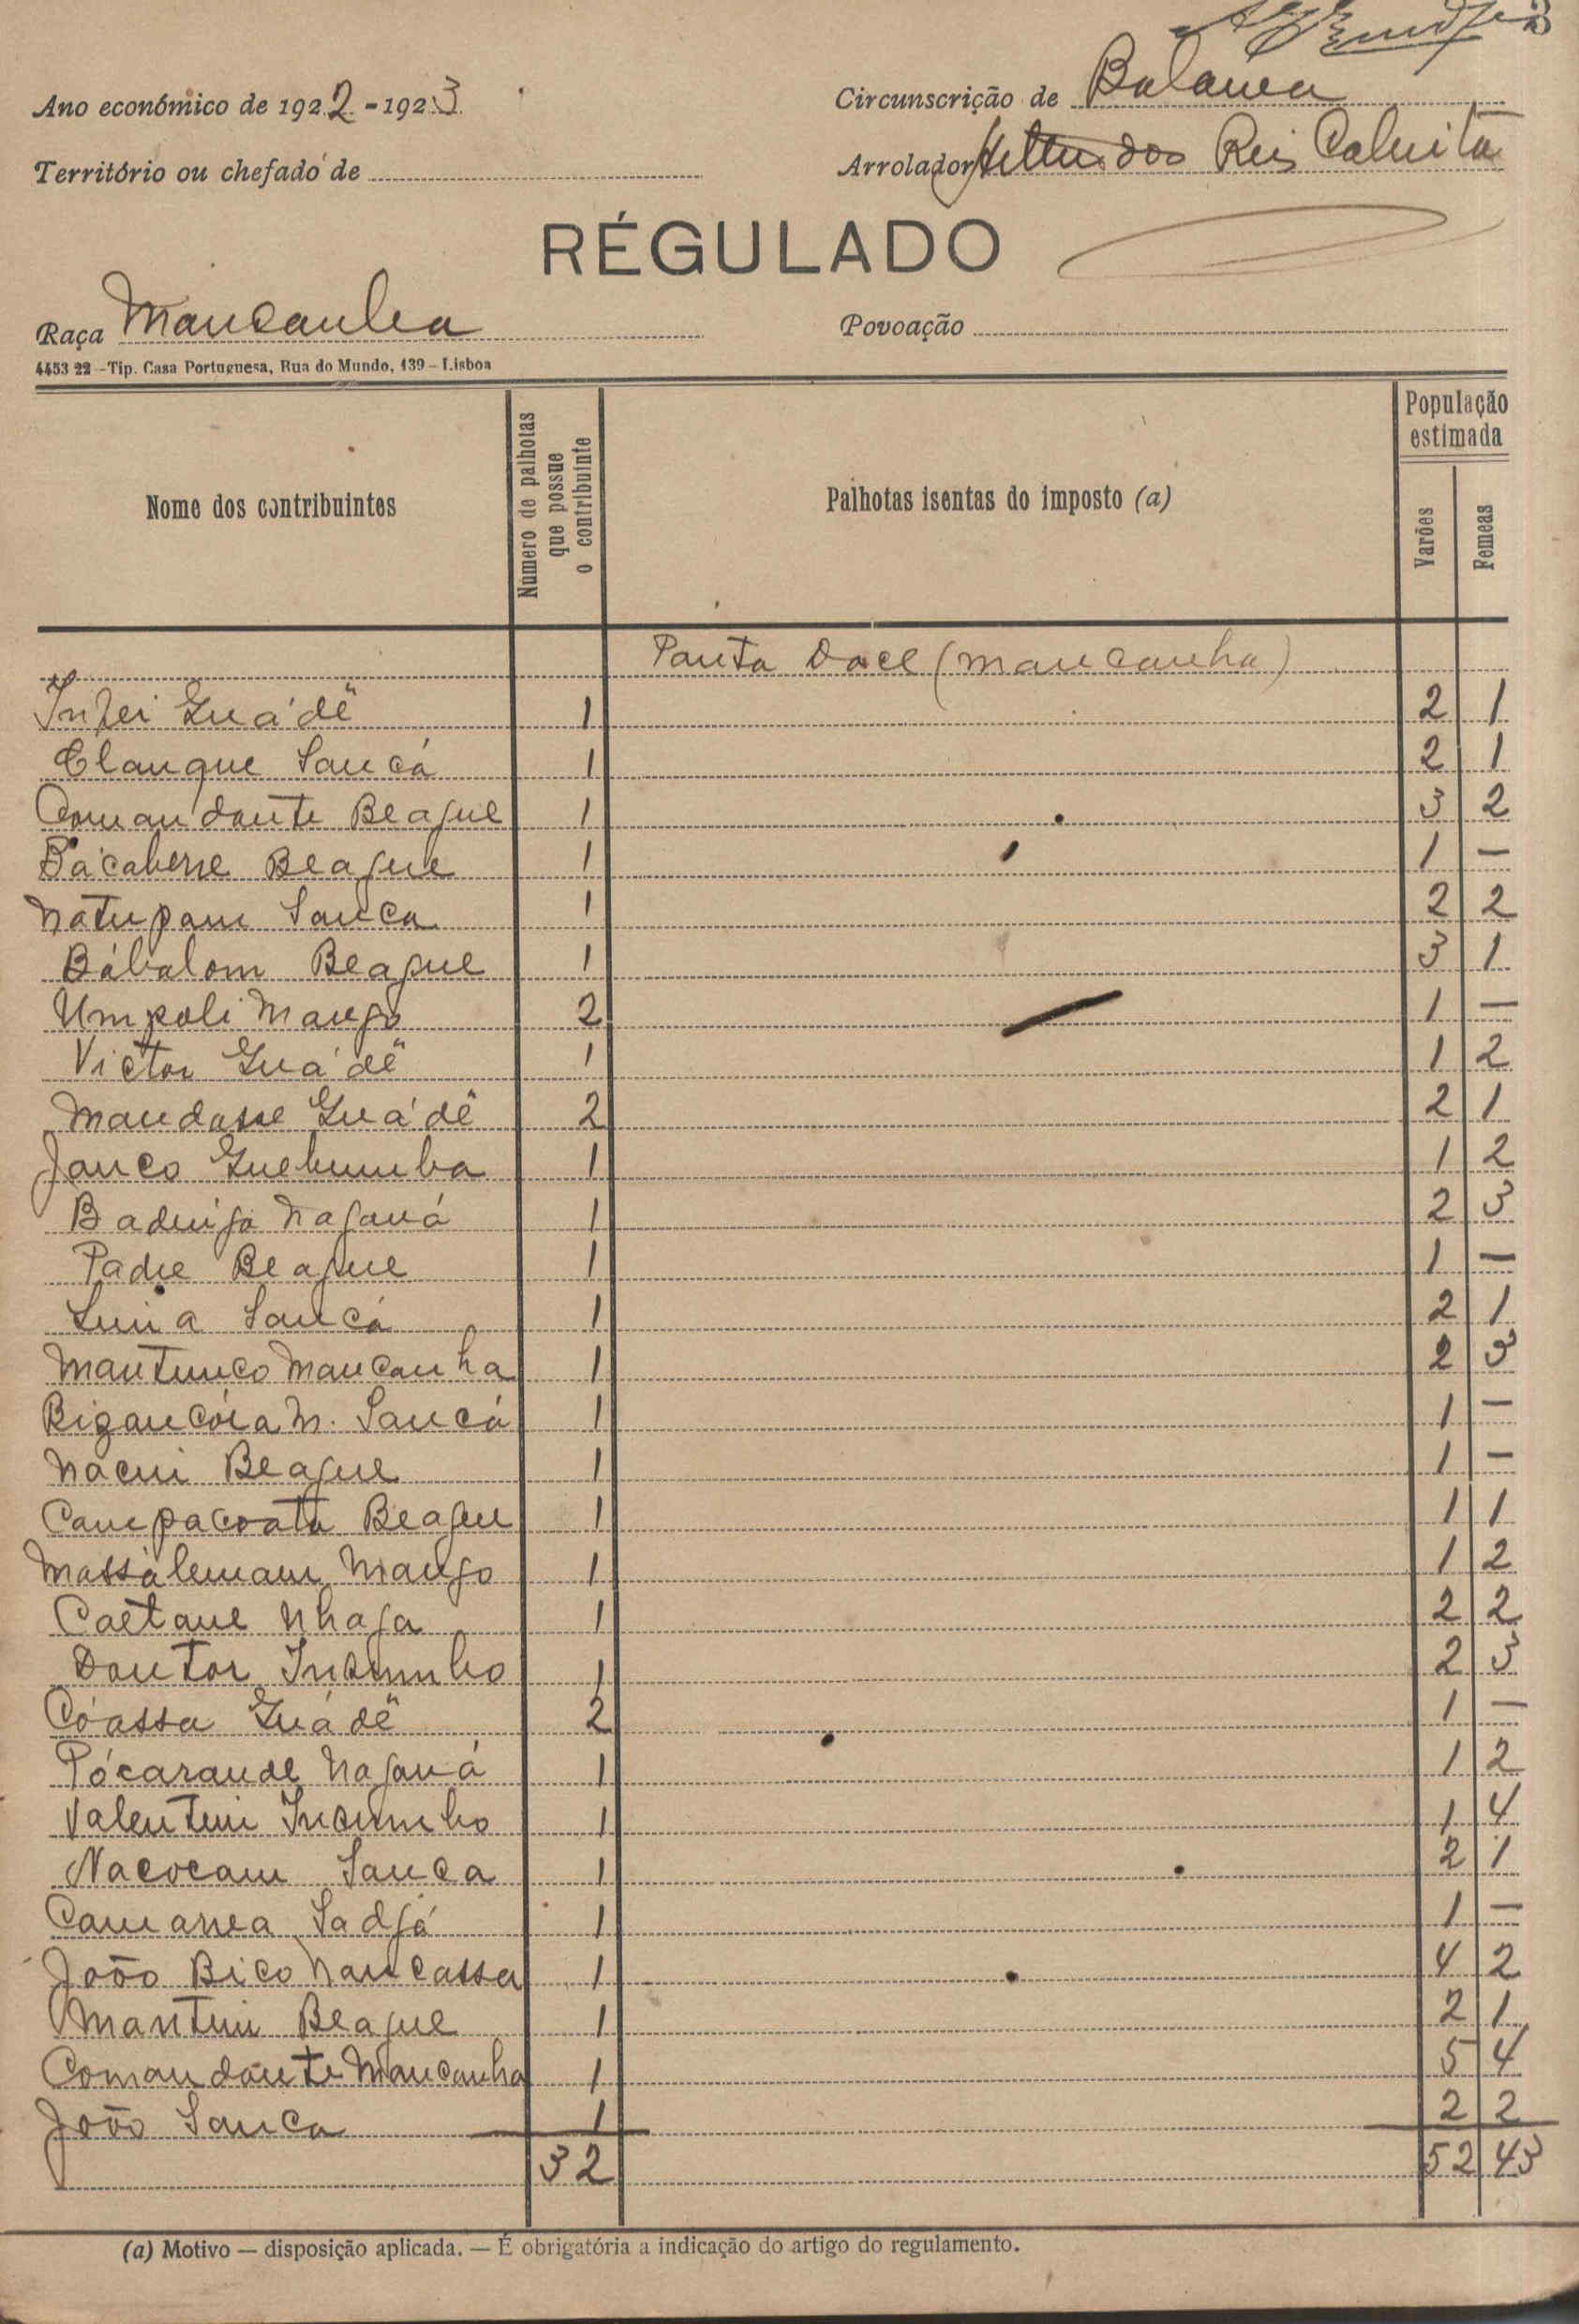 Ano económico de 1922-1923
Circunscrição de Balanta
Território ou chefado de
Arrolador dos Reis
RÉGULADO
Raça Mancanha
Povoação
4453 22 - Tip. Casa Portuguesa, Rua do Mundo, 139 - Lisboa
Nome dos contribuintes
Número de palhotas que possue o contribuinte
Palhotas isentas do imposto (a)
População estimada
Varões
Femeas
Ponta Doce (mancanha)
Guádê 1 2 1
Clanque Sancá 1 2 1
Comandante Beague 1 3 2
Beague 1 1 —
Natupam Sanca 1 2 2
Bábalom Beague 1 3 1
Umpoli Mango 2 1 —
Victor Guádê 1 1 2
Mandasse Guádê 2 2 1
Janco 1 1 2
Naganá 1 2 3
Padre Beague 1 1 —
Sancá 1 2 1
Mancanha 1 2 3
N. Sancá 1 1 —
Beague 1 1 —
Beague 1 1 1
Mango 1 1 2
Caetane Nhaga 1 2 2
Doutor Incumbo 1 2 3
Cóassa Guádê 2 1 —
Pócarande Naganá 1 1 2
Valentim Incumbo 1 1 4
Nacocam Sanca 1 2 1
Sadjó 1 1 —
João Bico Nancassa 1 4 2
Beague 1 2 1
Comandante Mancanha 1 5 4
João Sanca 1 2 2
32 52 43
(a) Motivo — disposição aplicada. — É obrigatória a indicação do artigo do regulamento.